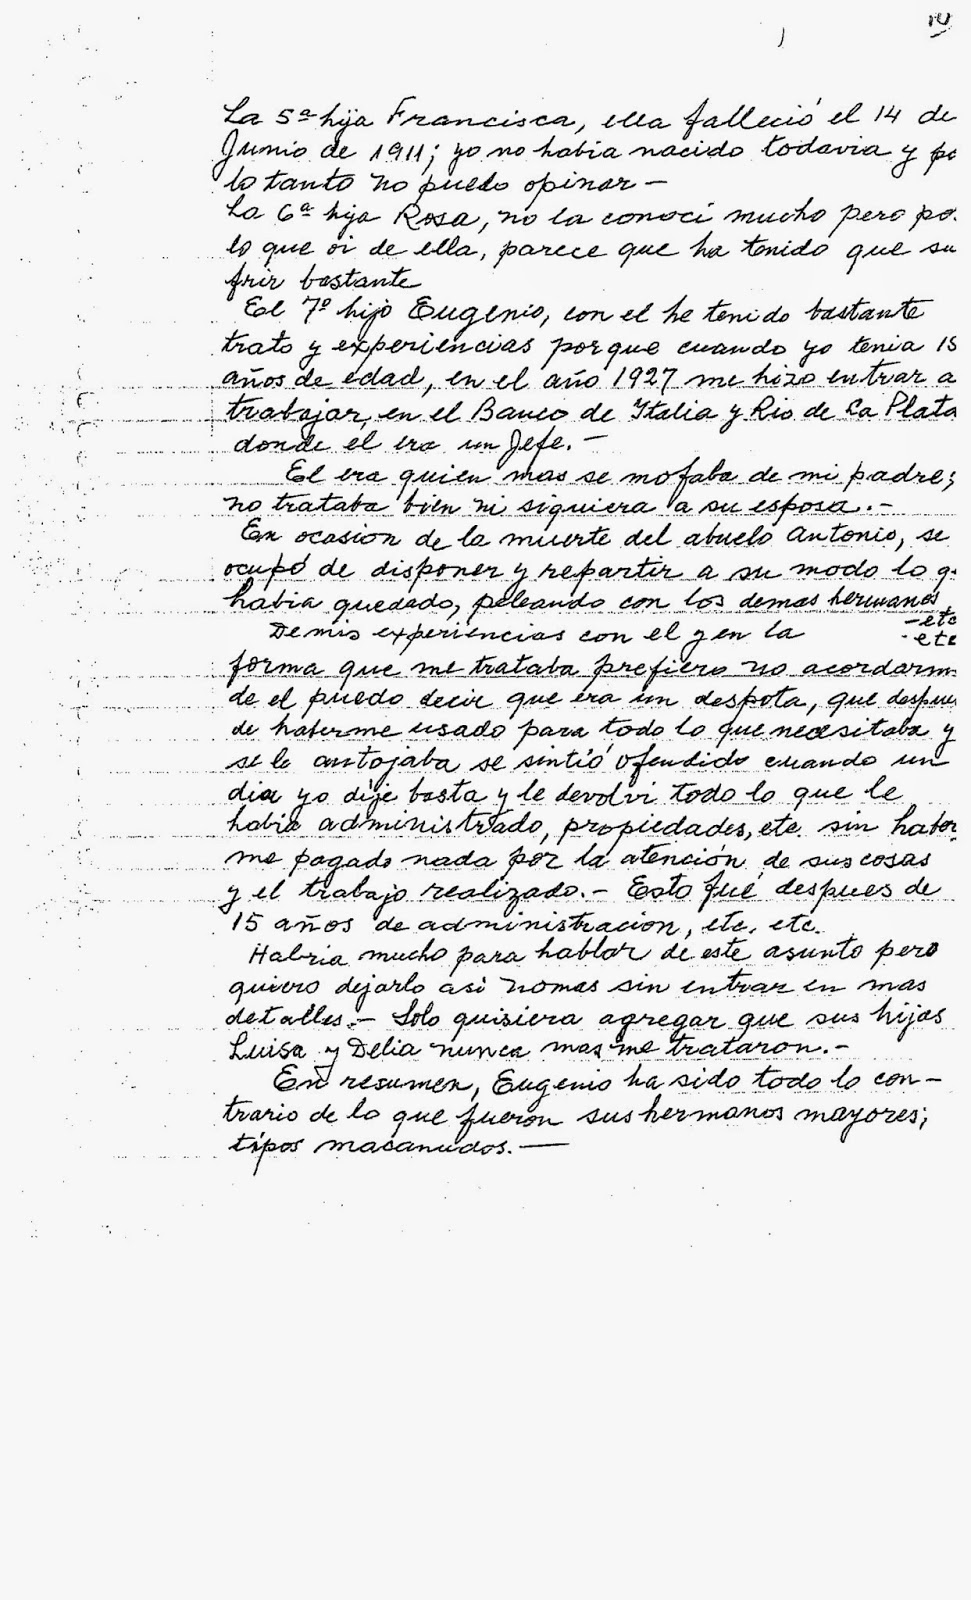 La 5ª hija Francisca, ella falleció el 14 de
Junio de 1911; yo no habia nacido todavia y po
lo tanto no puedo opinar —
La 6ª hija Rosa, no la conoci mucho pero po
lo que oi de ella, parece que ha tenido que su
frir bastante
El 7º hijo Eugenio, con el he tenido bastante
trato y experiencias porque cuando yo tenia 15
años de edad, en el año 1927 me hizo entrar a
trabajar en el Banco de Italia y Rio de La Plata
donde el era un Jefe. —
El era quien mas se mofaba de mi padre;
no trataba bien ni siquiera a su esposa. —
En ocasion de la muerte del abuelo Antonio, se
ocupó de disponer y repartir a su modo lo q
habia quedado, peleando con los demas hermanos
- etc
- etc
De mis experiencias con el y en la
forma que me trataba prefiero no acordarm
de el puedo decir que era un despota, que despue
de haberme usado para todo lo que necesitaba y
se le antojaba se sintió ofendido cuando un
dia yo dije basta y le devolvi todo lo que le
habia administrado, propiedades, etc. sin haber
me pagado nada por la atención de sus cosas
y el trabajo realizado. — Esto fué despues de
15 años de administracion, etc. etc.
Habria mucho para hablar de este asunto pero
quiero dejarlo asi nomas sin entrar en mas
detalles. — Solo quisiera agregar que sus hijas
Luisa y Delia nunca mas me trataron. —
En resumen, Eugenio ha sido todo lo con-
trario de lo que fueron sus hermanos mayores;
tipos macanudos. —